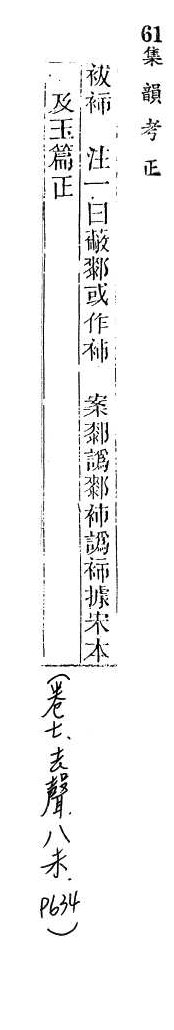 61集韻考正
袚𧘟 注一曰蔽厀或作𧘟 案厀譌䣛𧘟譌𧘟據宋本
及玉篇正
(卷七、去聲.八未. P634)